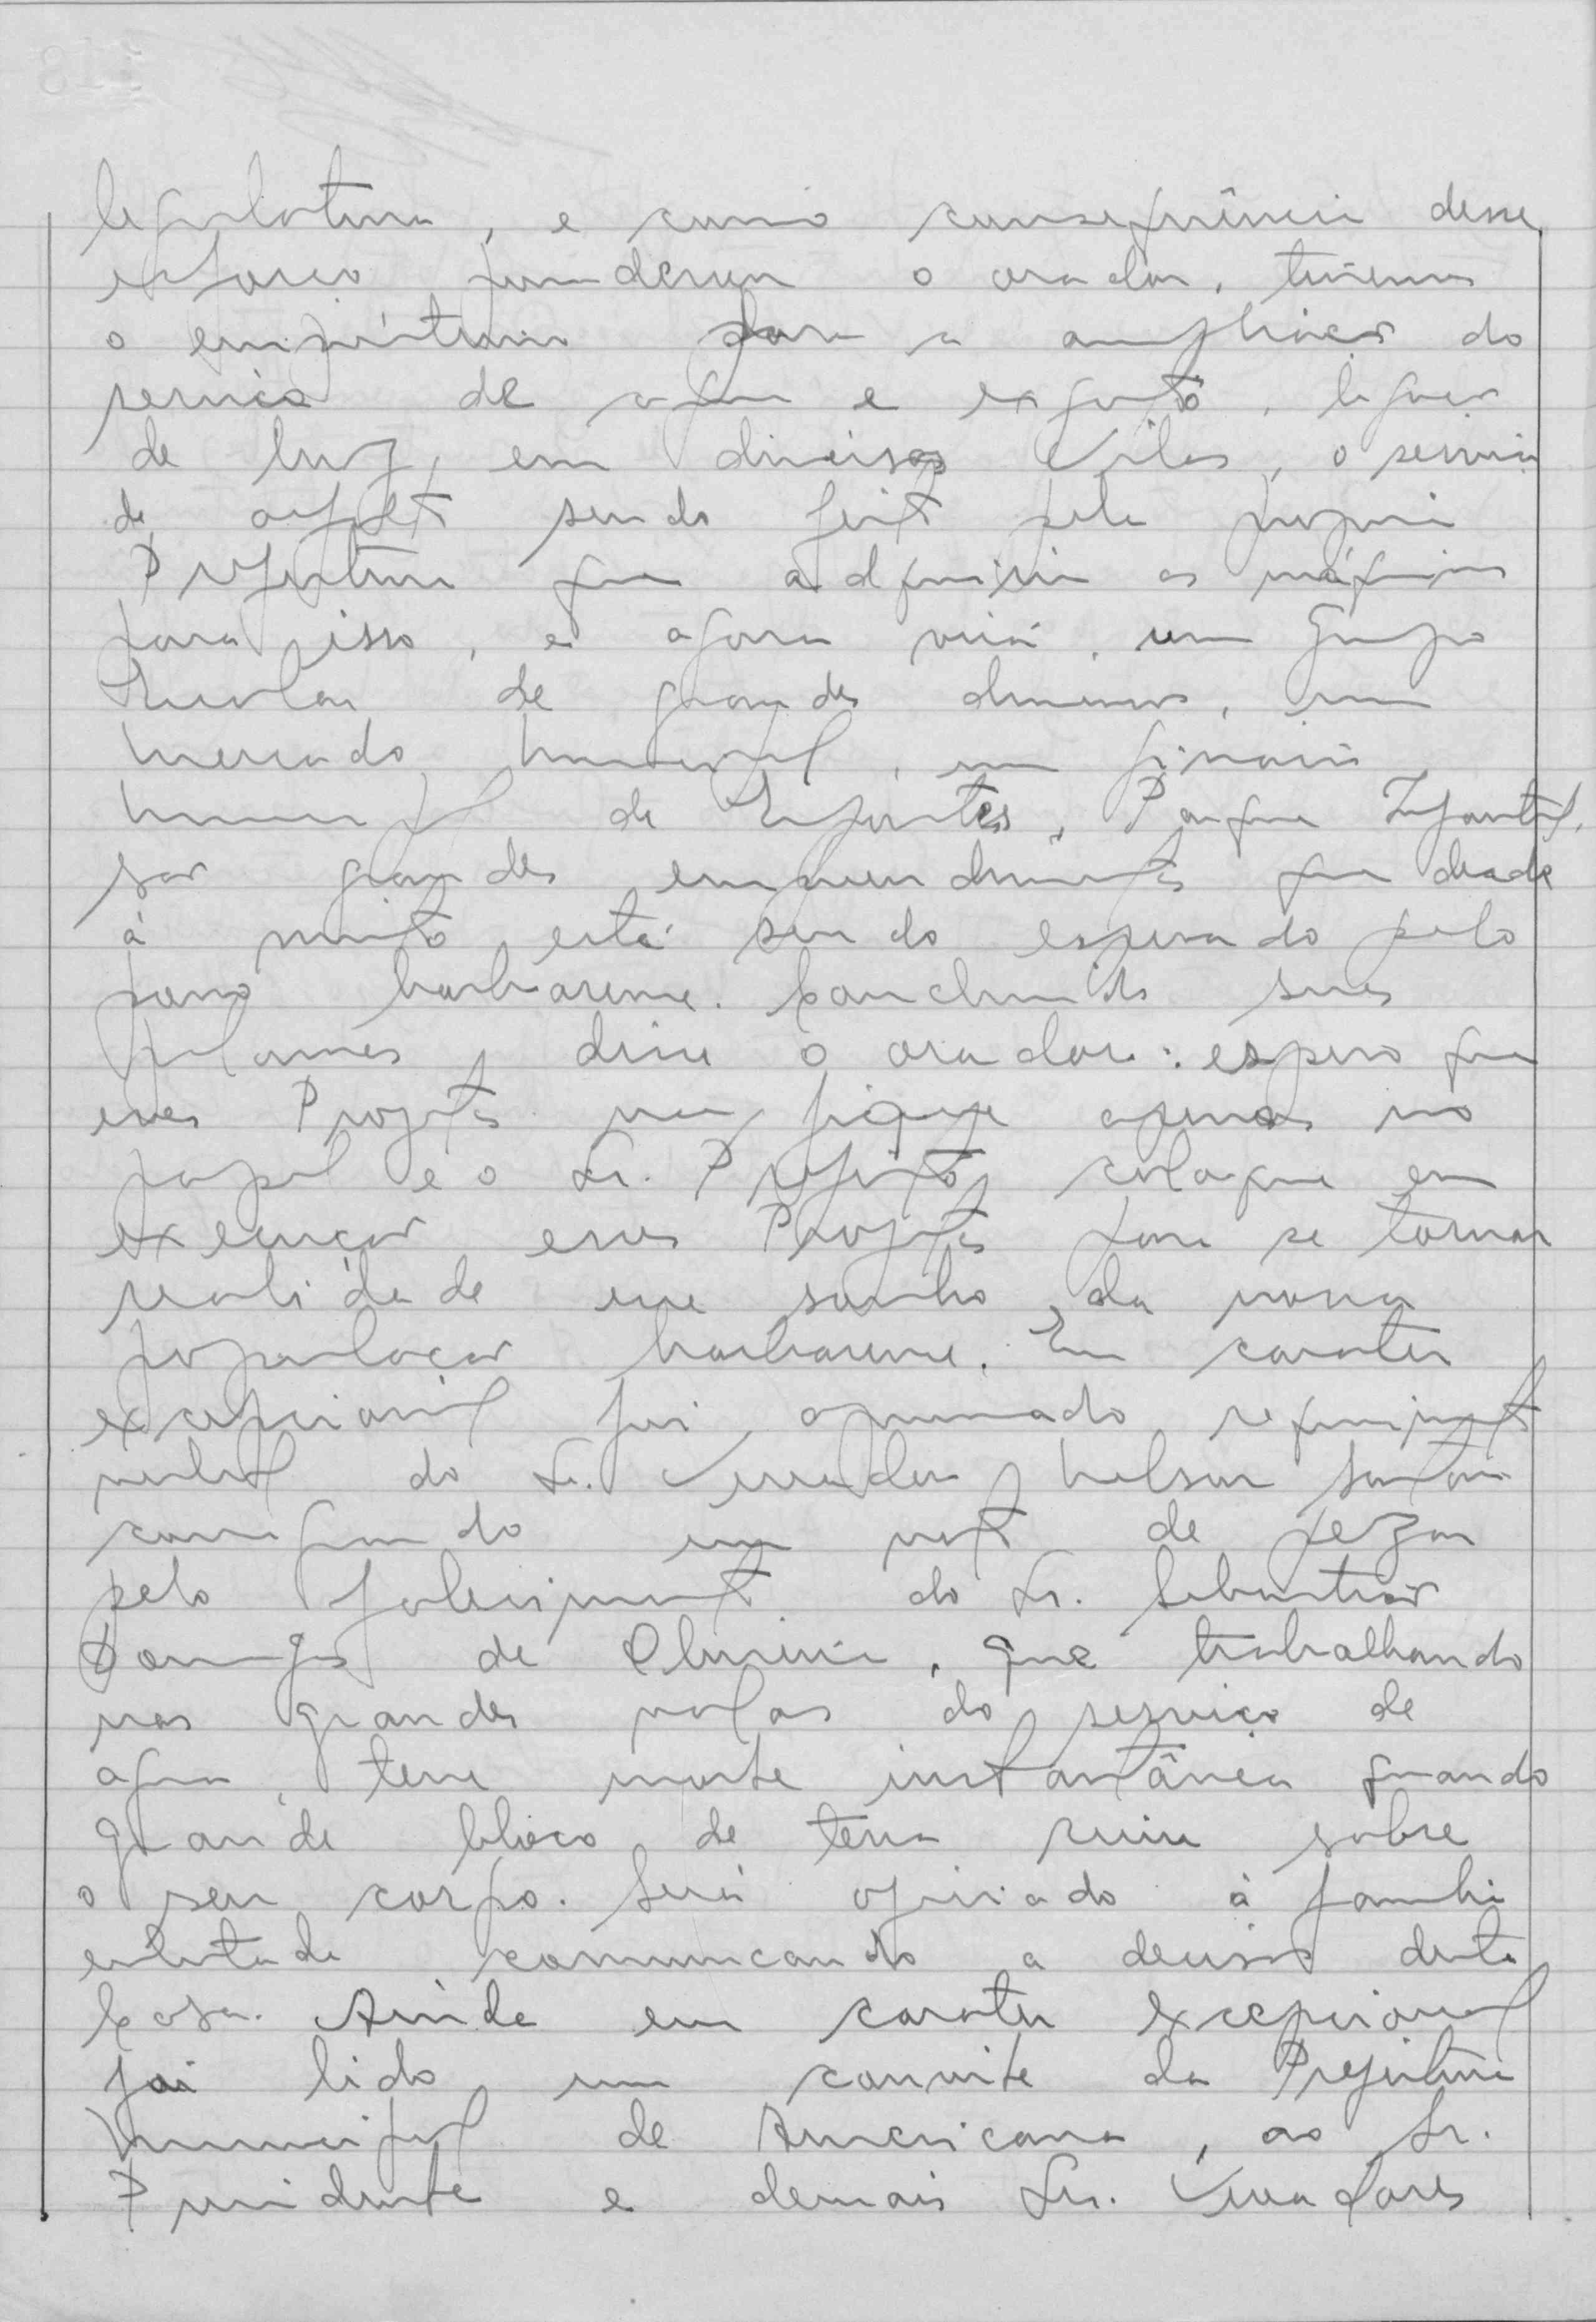 legislatura, e como consequência desse
esforço ponderou o orador, tivemos
o empréstimo para a ampliação do
serviço de agua e exgoto, ligação
de luz, em diversas Vilas, o serviço
de asfalto sendo feito pela propria
Prefeitura que adquiriu as máquinas
para isso, e agora virá, um Grupo
Escolar de grandes dimensões, um
mercado municipal, um ginasio
municipal de Esportes, Parque Infantil,
são grandes empreendimentos que desde
á muito está sendo esperado pelo
povo barbarense. Concluindo suas
palavras, disse o orador: espero que
esses Projetos não fique apenas no
papel e o Sr. Prefeito, coloque em
execução esses Projetos para se tornar
realidade esse sonho da nossa
população barbarense. Em carater
excepcional foi aprovado requerimento
verbal do Sr. Vereador Nelson
consignando um voto de pezar
pelo falecimento do Sr. Sebastião
Domingos de Oliveira, que trabalhando
nas grandes valas do serviço de
agua, teve morte instantânea quando
grande bloco de terra ruiu sobre
o seu corpo. Será oficiado á familia
enlutada comunicando a decisão desta
Casa. Ainda em carater excepcional
foi lido um convite da Prefeitura
Municipal de Americana, ao Sr.
Presidente e demais Srs. Vereadores